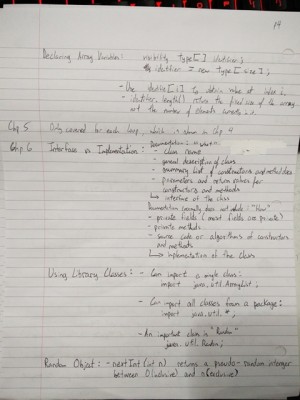 14
Declaring Array Variables: visibility type[] identifier;
identifier = new type[size];
- Use identifier[i] to obtain value at index i.
- identifier.length() returns the fixed size of the array,
not the number of elements currently in it.
Chp 5 Only covered for each loop, which is shown in Chp 4
Chp. 6 Interface vs Implementation: Documentation is "What":
- class name
- general description of class
- summary list of constructors and methods
- parameters and return values for
constructors and methods
↳ interface of the class
Documentation normally does not include: "How"
- private fields (most fields are private)
- private methods
- source code or algorithms of constructors
and methods
↳ implementation of the class
Using Library Classes: - Can import a single class:
import java.util.ArrayList;
- Can import all classes from a package:
import java.util.*;
- An important class is "Random"
java.util.Random;
Random Object: - nextInt(int n) returns a pseudo-random interger
between 0 (inclusive) and n (exclusive)